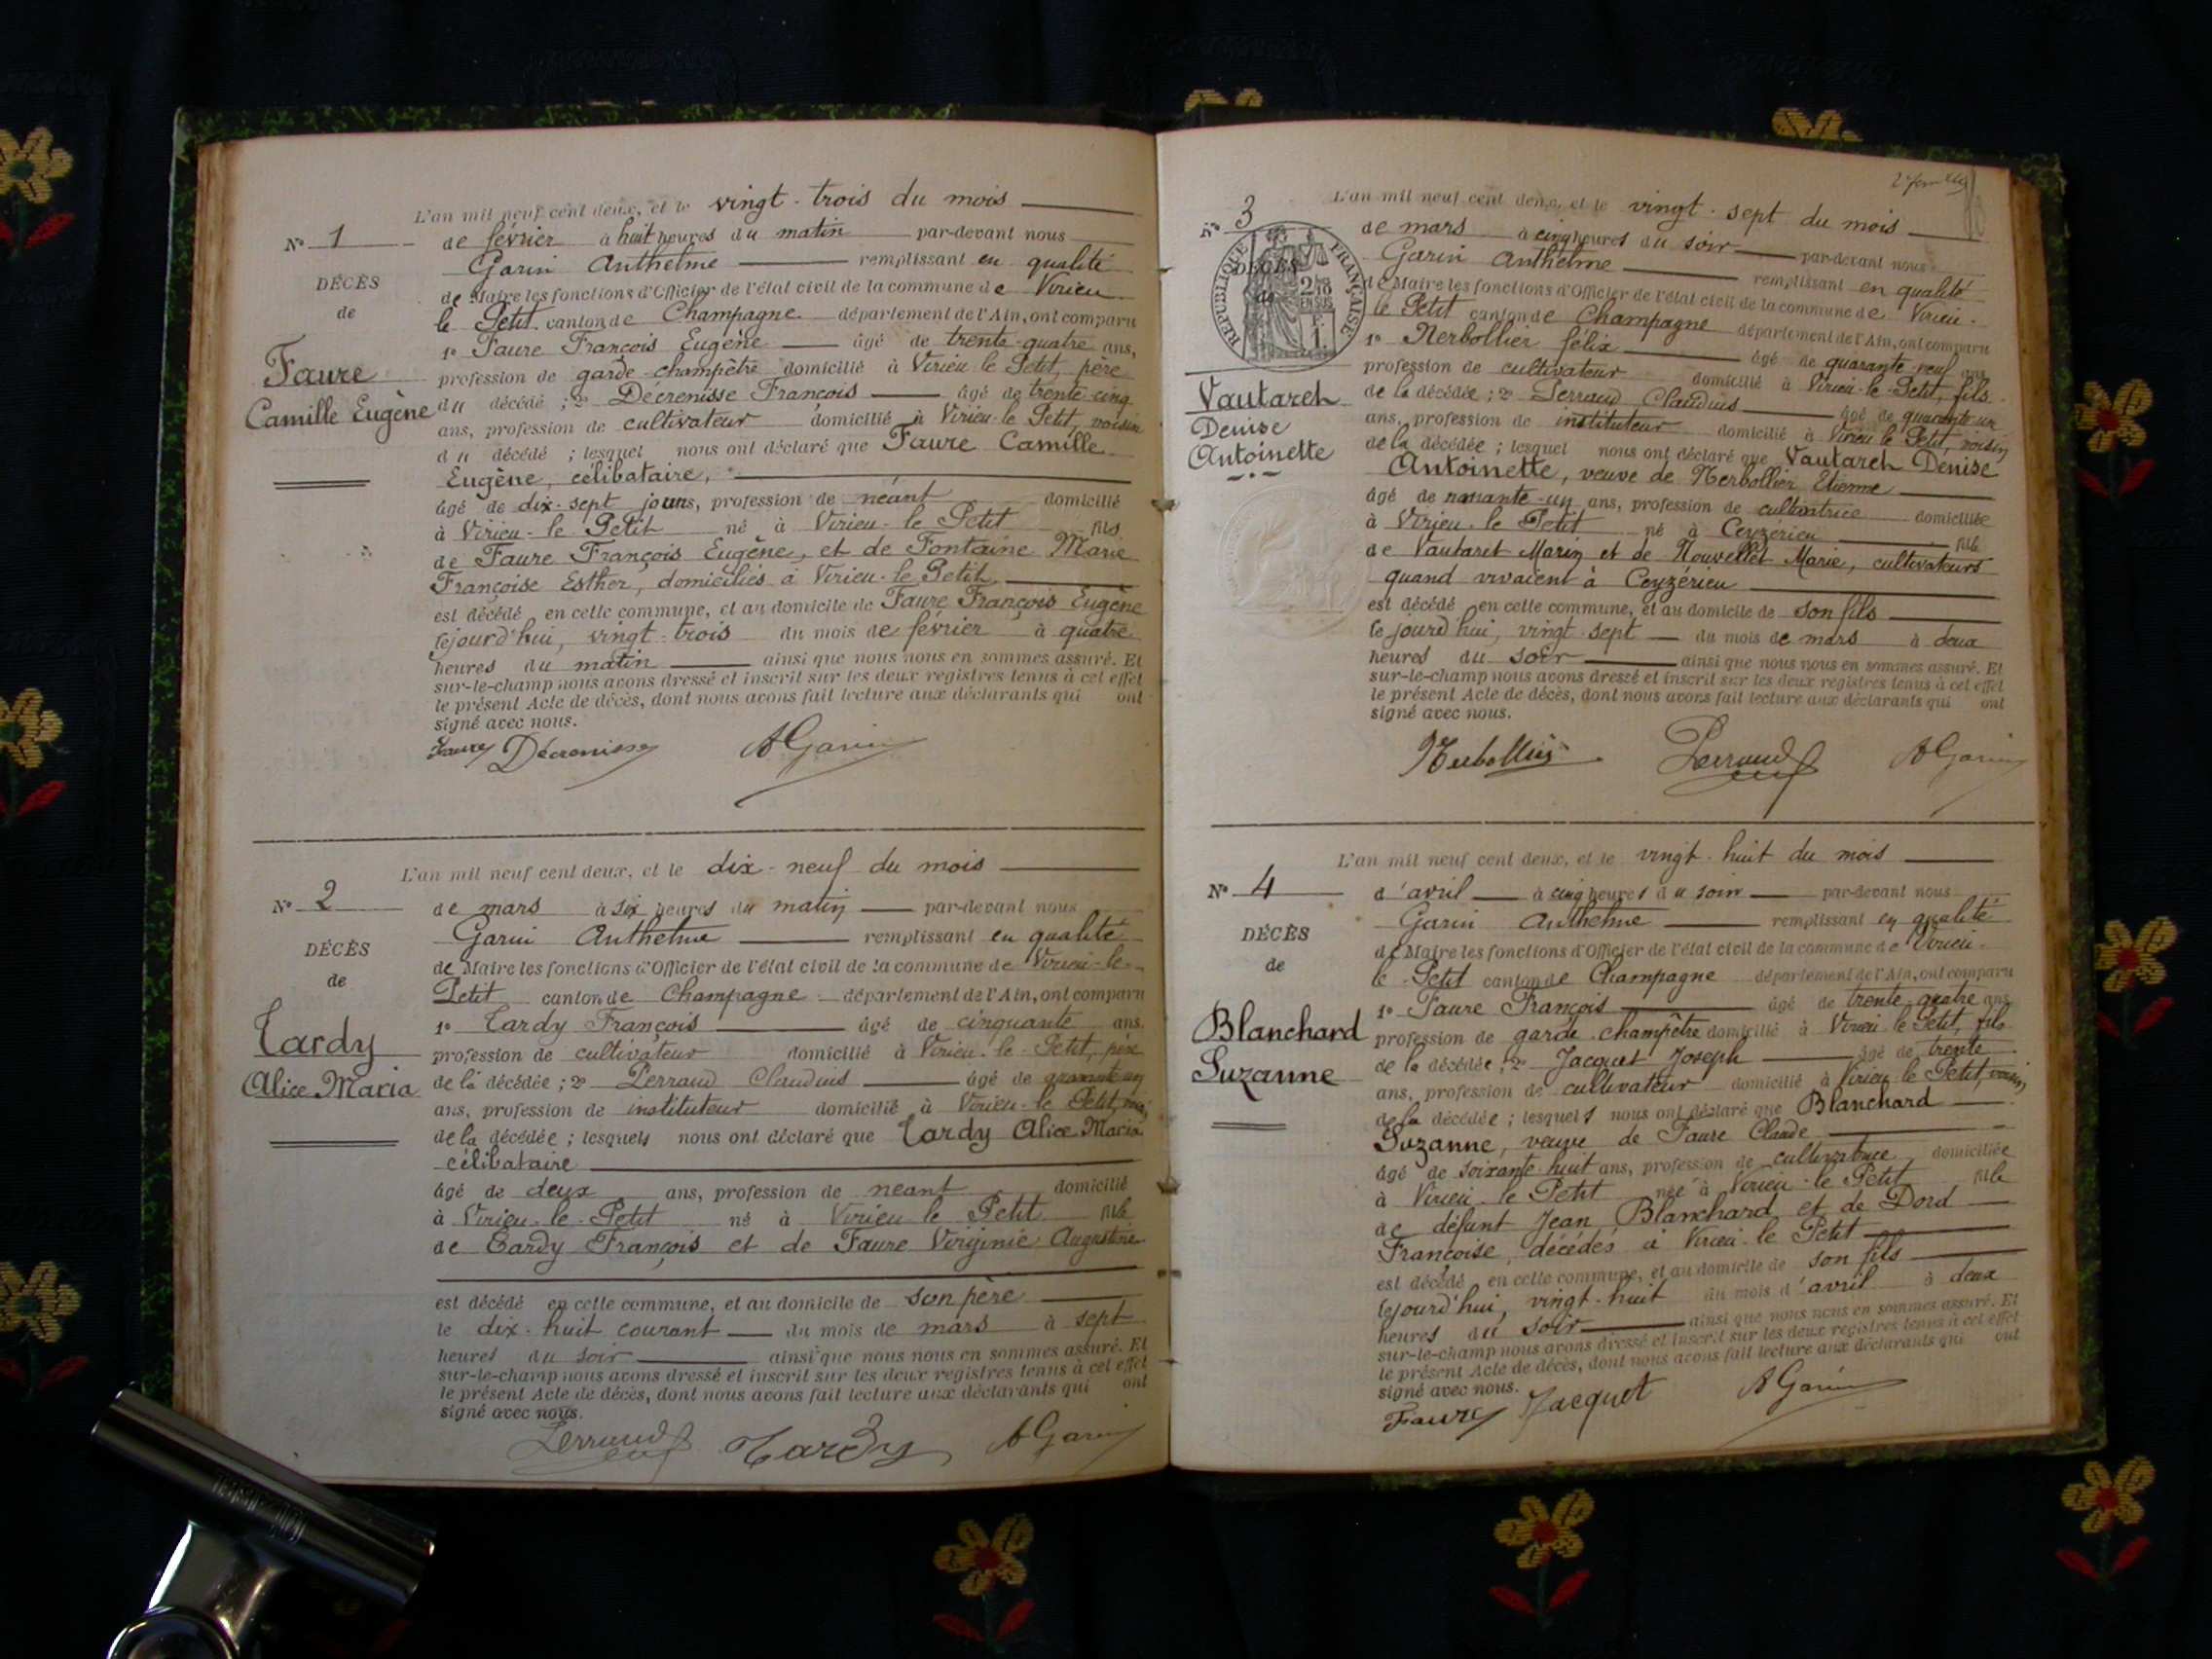 L'an mil neuf cent deux, et le vingt-trois du mois
N° 1
de février à huit heures du matin par-devant nous
Garin Anthelme remplissant en qualité
DÉCÈS
de Maire les fonctions d'Officier de l'état civil de la commune de Virieu
de
le Petit canton de Champagne département de l'Ain, ont comparu
1° Faure François Eugène âgé de trente-quatre ans,
Faure
profession de garde-champêtre domicilié à Virieu le Petit, père
Camille Eugène
du décédé ; 2° Décrenisse François âgé de trente-cinq
ans, profession de cultivateur domicilié à Virieu le Petit, voisin
du décédé ; lesquel nous ont déclaré que Faure Camille
Eugène, célibataire,
âgé de dix-sept jours, profession de néant domicilié
à Virieu-le Petit né à Virieu-le Petit fils
de Faure François Eugène, et de Fontaine Marie
Françoise Esther, domiciliés à Virieu-le Petit
est décédé en cette commune, et au domicile de Faure François Eugène
lejourd'hui, vingt-trois du mois de février à quatre
heures du matin ainsi que nous nous en sommes assuré. Et
sur-le-champ nous avons dressé et inscrit sur les deux registres tenus à cet effet
le présent Acte de décès, dont nous avons fait lecture aux déclarants qui ont
signé avec nous.
Faure Décrenisse A Garin
L'an mil neuf cent deux, et le dix-neuf du mois
N° 2
de mars à six heures du matin par-devant nous
Garin Anthelme remplissant en qualité
DÉCÈS
de Maire les fonctions d'Officier de l'état civil de la commune de Virieu-le
de
Petit canton de Champagne département de l'Ain, ont comparu
1° Tardy François âgé de cinquante ans.
Tardy
profession de cultivateur domicilié à Virieu-le-Petit, père
Alice Maria
de la décédée ; 2° Perraud Claudius âgé de quarante un
ans, profession de instituteur domicilié à Virieu-le Petit,
de la décédée ; lesquels nous ont déclaré que Tardy Alice Maria
célibataire
âgé de deux ans, profession de néant domicilié
à Virieu-le-Petit né à Virieu le Petit fille
de Tardy François et de Faure Virginie Augustine
est décédé en cette commune, et au domicile de son père
le dix-huit courant du mois de mars à sept
heures du soir ainsi que nous nous en sommes assuré. Et
sur-le-champ nous avons dressé et inscrit sur les deux registres tenus à cet effet
le présent Acte de décès, dont nous avons fait lecture aux déclarants qui ont
signé avec nous.
Perraud Tardy A Garin
L'an mil neuf cent deux, et le vingt-sept du mois
N° 3
de mars à cinq heures du soir par-devant nous
Garin Anthelme remplissant en qualité
DÉCÈS
de
RÉPUBLIQUE FRANÇAISE
2/10 EN SUS
1 F.
de Maire les fonctions d'Officier de l'état civil de la commune de Virieu-
le Petit canton de Champagne département de l'Ain, ont comparu
1° Nerbollier félix âgé de quarante-neuf ans
profession de cultivateur domicilié à Virieu-le-Petit, fils
Vautareh
Denise
Antoinette
de la décédée ; 2° Perraud Claudius âgé de quarante un
ans, profession de instituteur domicilié à Virieu le Petit, voisin
de la décédée ; lesquel nous ont déclaré que Vautareh Denise
Antoinette, veuve de Nerbollier Etienne
âgé de nonante-un ans, profession de cultivatrice domiciliée
à Virieu-le Petit né à Ceyzérieu fille
de Vautaret Marin et de Nouvellet Marie, cultivateurs
quand vivaient à Ceyzérieu
est décédé en cette commune, et au domicile de son fils
lejourd'hui, vingt-sept du mois de mars à deux
heures du soir ainsi que nous nous en sommes assuré. Et
sur-le-champ nous avons dressé et inscrit sur les deux registres tenus à cet effet
le présent Acte de décès, dont nous avons fait lecture aux déclarants qui ont
signé avec nous.
Nerbollier Perraud A Garin
L'an mil neuf cent deux, et le vingt-huit du mois
N° 4
d'avril à cinq heures du soir par-devant nous
Garin Anthelme remplissant en qualité
DÉCÈS
de Maire les fonctions d'Officier de l'état civil de la commune de Virieu-
de
le-Petit canton de Champagne département de l'Ain, ont comparu
1° Faure François âgé de trente-quatre ans
Blanchard
profession de garde-champêtre domicilié à Virieu le Petit, fils
Suzanne
de la décédée ; 2° Jacquet Joseph âgé de trente
ans, profession de cultivateur domicilié à Virieu le Petit, voisin
de la décédée ; lesquels nous ont déclaré que Blanchard
Suzanne, veuve de Faure Claude
âgé de soixante-huit ans, profession de cultivatrice domiciliée
à Virieu-le Petit née à Virieu-le Petit fille
de défunt Jean Blanchard et de Dord
Françoise, décédés à Virieu-le Petit
est décédé en cette commune, et au domicile de son fils
lejourd'hui, vingt-huit du mois d'avril à deux
heures du soir ainsi que nous nous en sommes assuré. Et
sur-le-champ nous avons dressé et inscrit sur les deux registres tenus à cet effet
le présent Acte de décès, dont nous avons fait lecture aux déclarants qui ont
signé avec nous.
Faure Jacquet A Garin